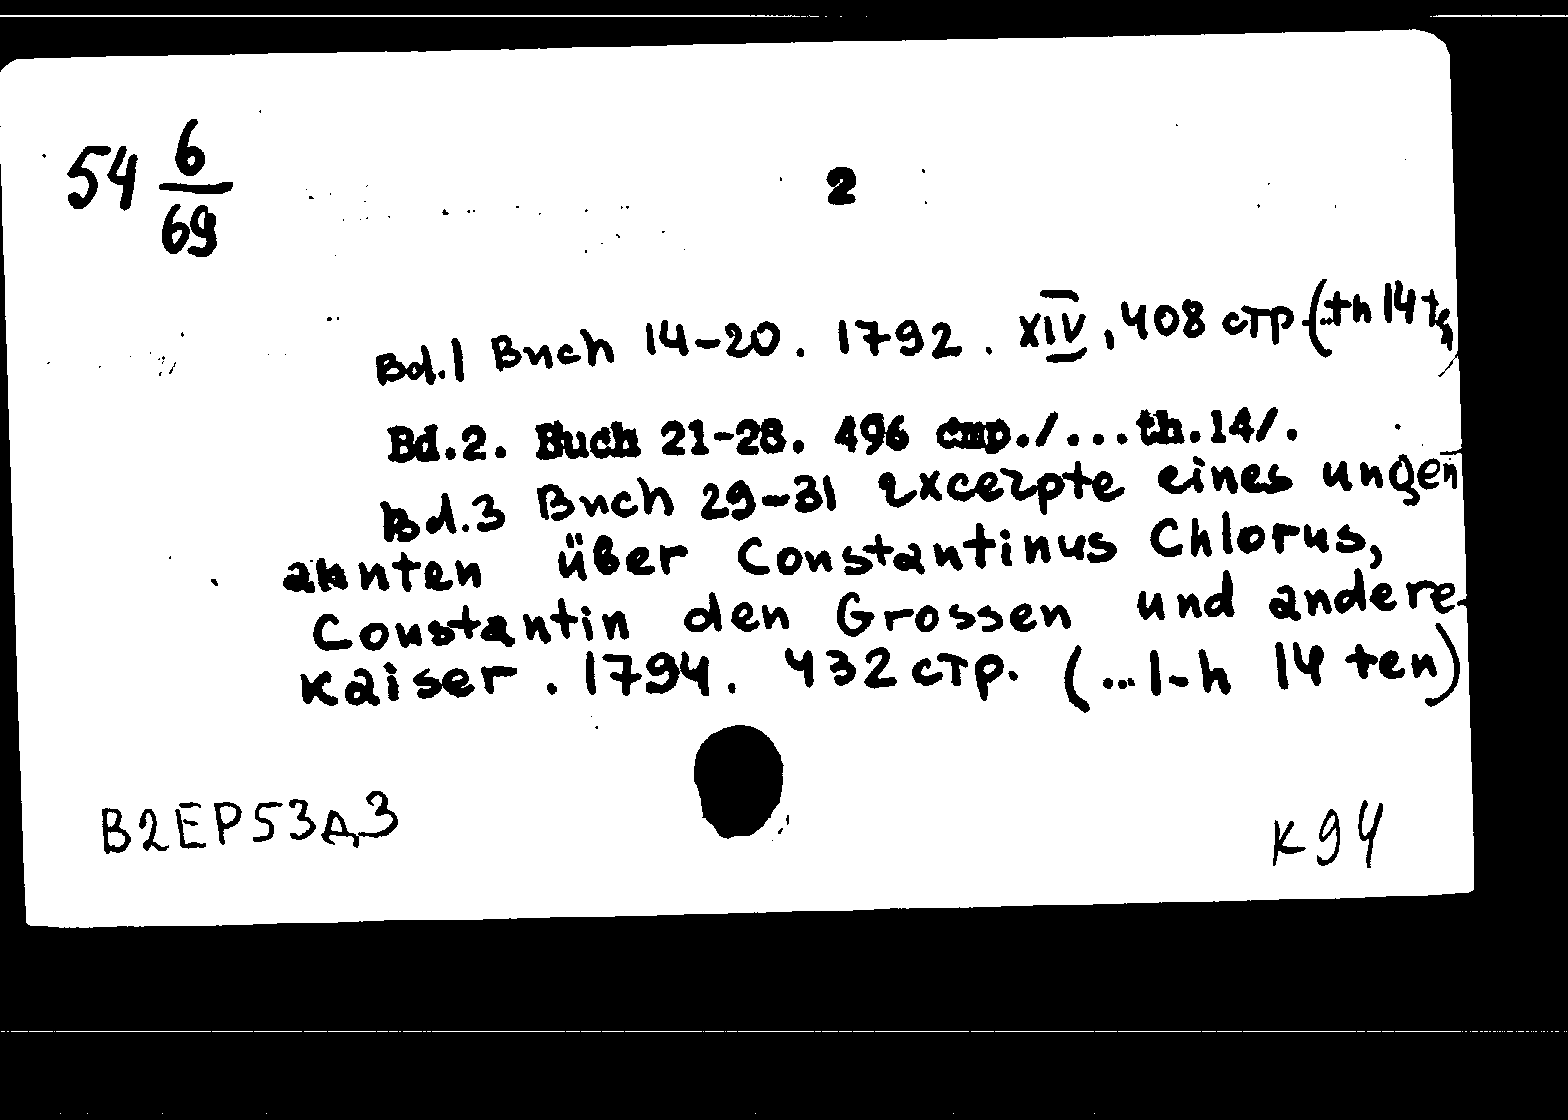 54 6/69
2
Bd.1 Buch 14-20. 1792. XIV, 408 стр (..th 14 t
Bd.2. Buch 21-28. 496 стр./...th.14/.
Bd.3 Buch 29-31 Excerpte eines ungen
annten über Constantinus Chlorus,
Constantin den Grossen und andere
Kaiser. 1794. 432 стр. (...l-h 14 ten)
В2ЕР53д3
К94